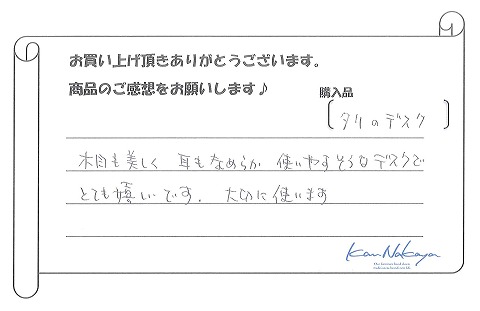 お買い上げ頂きありがとうございます。
商品のご感想をお願いします♪
購入品
タモのデスク
木目も美しく 耳もなめらか 使いやすそうなデスクで
とても嬉しいです. 大切に使います
Kan Nakaya